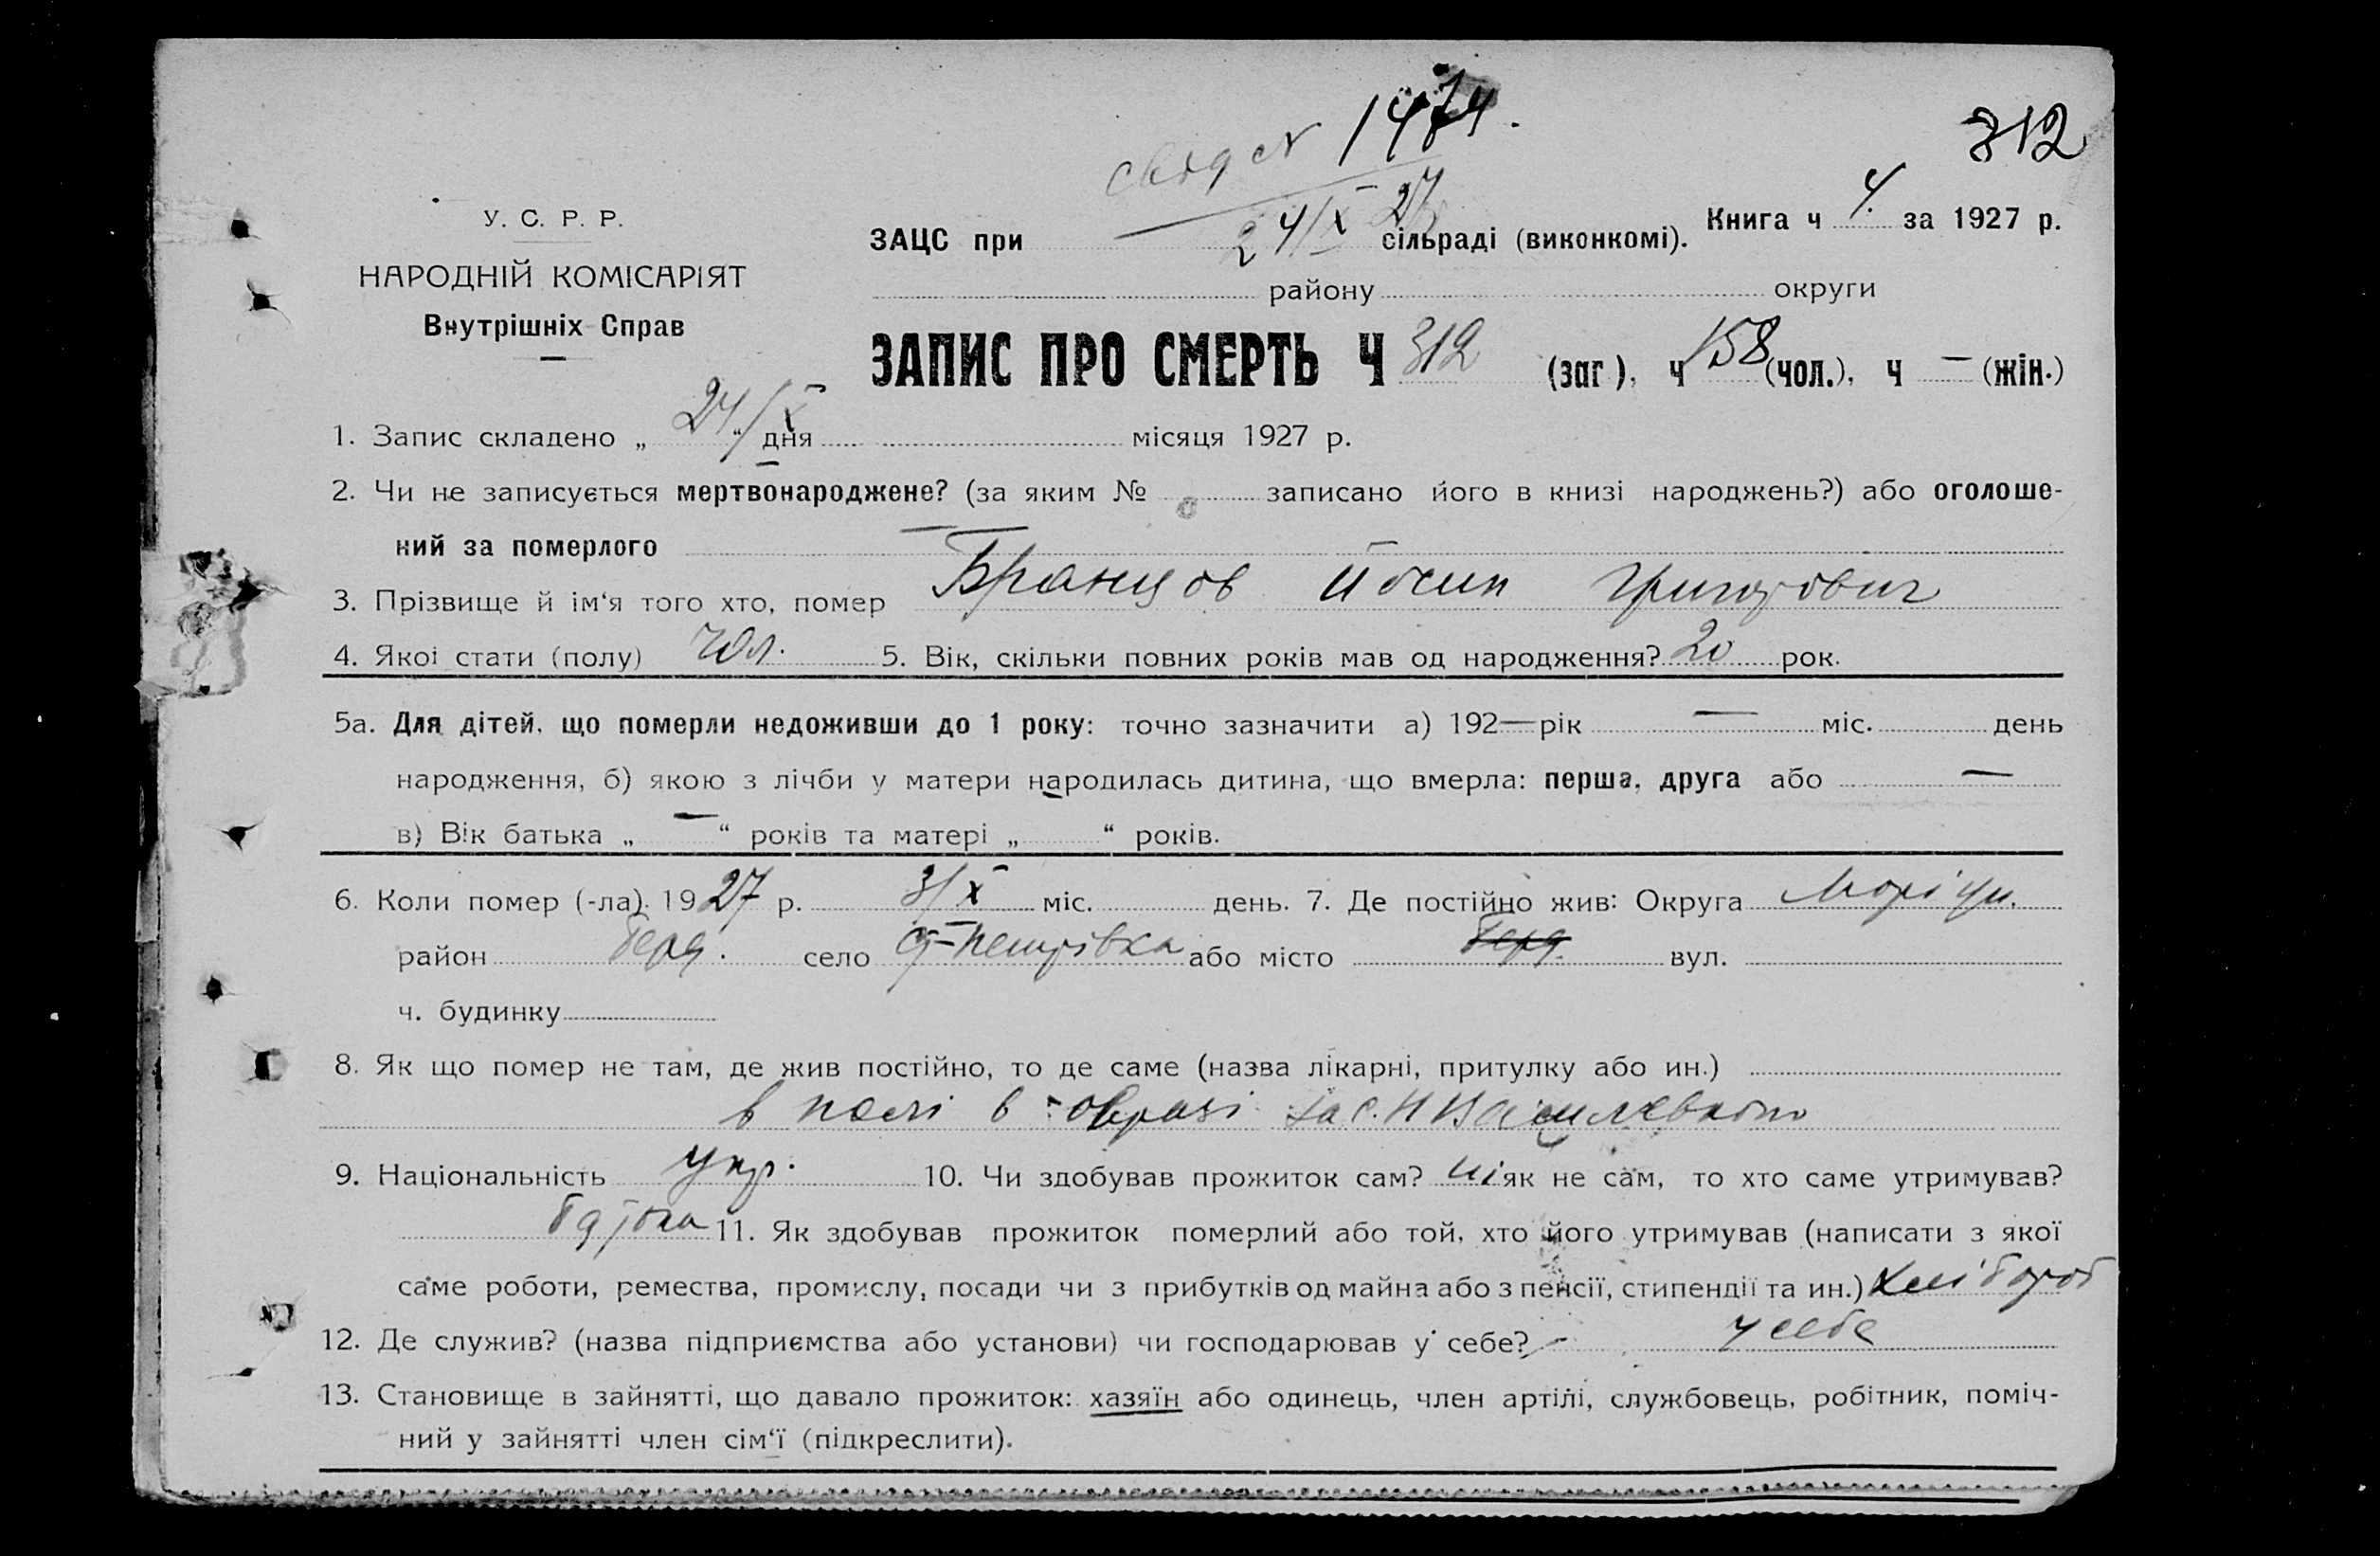 312
свід N 1474.
24/X 27
У. С. Р. Р.
НАРОДНІЙ КОМІСАРІЯТ
Внутрішніх Справ
Книга ч 4. за 1927 р.
ЗАЦС при сільраді (виконкомі).
району округи
ЗАПИС ПРО СМЕРТЬ Ч 312 (заг), ч 158 (чол.), ч — (жін.)
1. Запис складено „ 24/X “ дня місяця 1927 р.
2. Чи не записується мертвонароджене? (за яким № записано його в книзі народжень?) або оголоше-
ний за померлого —
3. Прізвище й ім‘я того хто, помер Бранцов Йосип Григорович
4. Якої стати (полу) чол. 5. Вік, скільки повних років мав од народження? 20 рок.
5а. Для дітей, що померли недоживши до 1 року: точно зазначити а) 192— рік — міс. день
народження, б) якою з лічби у матери народилась дитина, що вмерла: перша, друга або —
в) Вік батька „ — “ років та матері „ “ років.
6. Коли помер (-ла) 1927 р. 3/X міс. день. 7. Де постійно жив: Округа Маріуп.
район Берд. село -Петрівка або місто Берд. вул.
ч. будинку
8. Як що помер не там, де жив постійно, то де саме (назва лікарні, притулку або ин.)
в полі в овразі за с.
9. Національність Укр. 10. Чи здобував прожиток сам? ні як не сам, то хто саме утримував?
батько 11. Як здобував прожиток померлий або той, хто його утримував (написати з якої
саме роботи, ремества, промислу, посади чи з прибутків од майна або з пенсії, стипендії та ин.) хлібороб
12. Де служив? (назва підприємства або установи) чи господарював у себе? у себе
13. Становище в зайнятті, що давало прожиток: хазяїн або одинець, член артілі, службовець, робітник, поміч-
ний у зайнятті член сім‘ї (підкреслити).